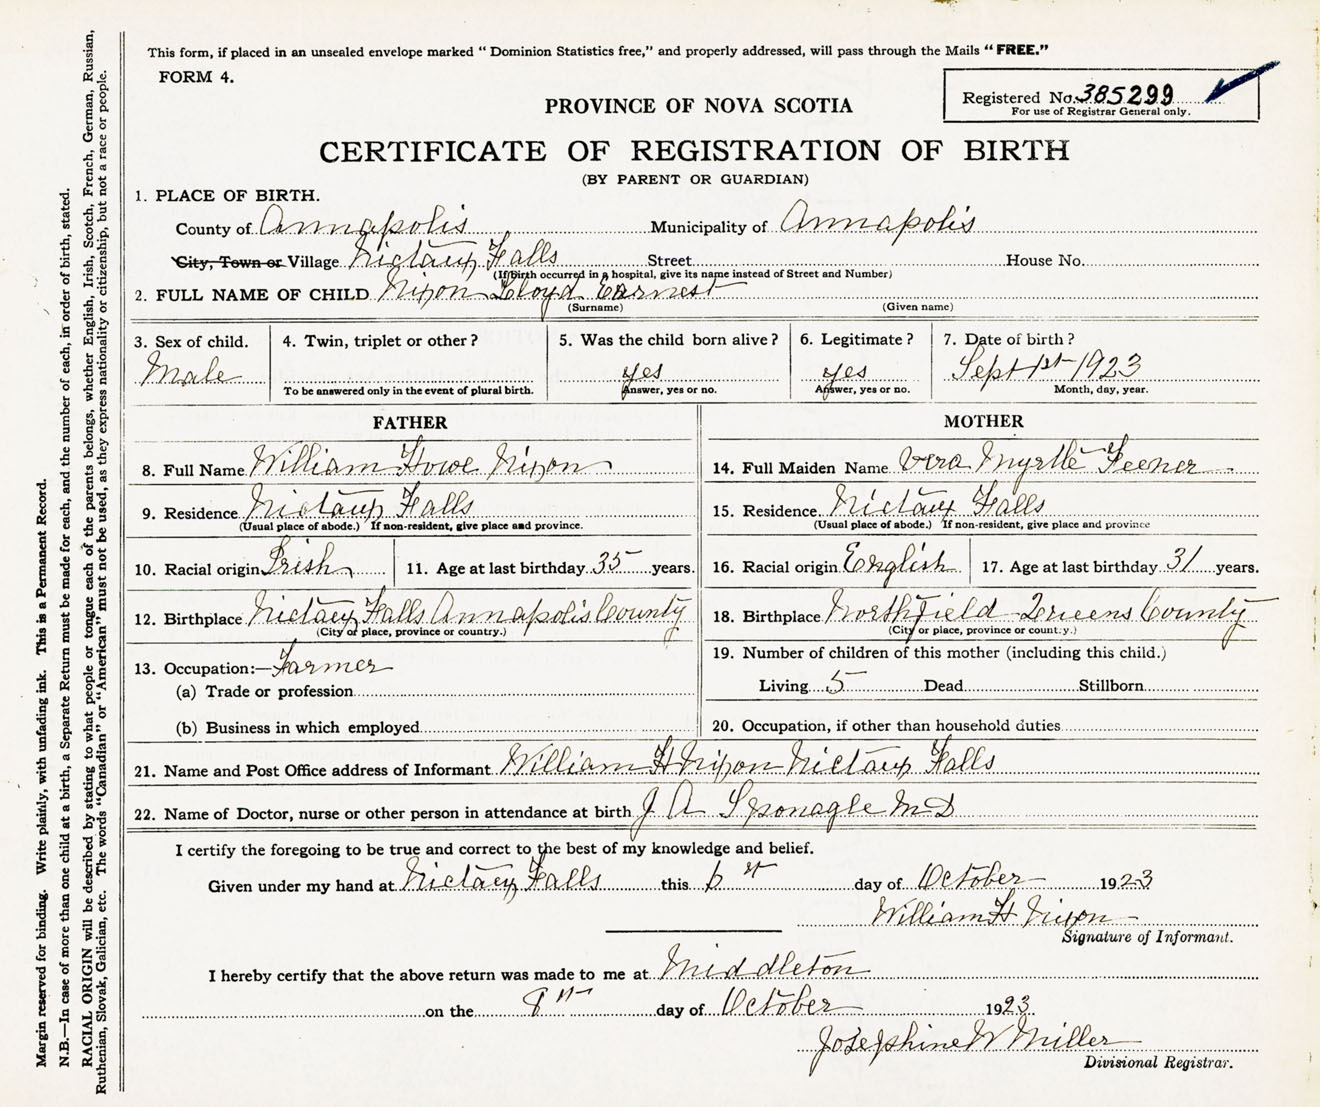 This form, if placed in an unsealed envelope marked “ Dominion Statistics free,” and properly addressed, will pass through the Mails “ FREE.”
FORM 4.
Registered No. 385299
For use of Registrar General only.
PROVINCE OF NOVA SCOTIA
CERTIFICATE OF REGISTRATION OF BIRTH
(BY PARENT OR GUARDIAN)
1. PLACE OF BIRTH.
County of Annapolis Municipality of Annapolis
City, Town or Village Nictaux Falls Street House No.
(If birth occurred in a hospital, give its name instead of Street and Number)
2. FULL NAME OF CHILD Nixon Lloyd Earnest
(Surname) (Given name)
3. Sex of child. 4. Twin, triplet or other ? 5. Was the child born alive ? 6. Legitimate ? 7. Date of birth ?
Male yes yes Sept 1st 1923
To be answered only in the event of plural birth. Answer, yes or no. Answer, yes or no. Month, day, year.
FATHER
8. Full Name William Howe Nixon
9. Residence Nictaux Falls
(Usual place of abode.) If non-resident, give place and province.
10. Racial origin Irish 11. Age at last birthday 35 years.
12. Birthplace Nictaux Falls Annapolis County
(City or place, province or country.)
13. Occupation:— Farmer
(a) Trade or profession
(b) Business in which employed
MOTHER
14. Full Maiden Name Vera Myrtle Feener
15. Residence. Nictaux Falls
(Usual place of abode.) If non-resident, give place and province
16. Racial origin English 17. Age at last birthday 31 years.
18. Birthplace Northfield Queens County
(City or place, province or country.)
19. Number of children of this mother (including this child.)
Living 5 Dead Stillborn
20. Occupation, if other than household duties
21. Name and Post Office address of Informant William H Nixon Nictaux Falls
22. Name of Doctor, nurse or other person in attendance at birth J A Sponagle M D
I certify the foregoing to be true and correct to the best of my knowledge and belief.
Given under my hand at Nictaux Falls this day of October 1923
William H Nixon
Signature of Informant.
I hereby certify that the above return was made to me at Middleton
on the 8th day of October 1923.
Josephine W Miller
Divisional Registrar.
Margin reserved for binding. Write plainly, with unfading ink. This is a Permanent Record.
N.B.—In case of more than one child at a birth, a Separate Return must be made for each, and the number of each, in order of birth, stated.
RACIAL ORIGIN will be described by stating to what people or tongue each of the parents belongs, whether English, Irish, Scotch, French, German, Russian,
Ruthenian, Slovak, Galician, etc. The words “Canadian” or “American” must not be used, as they express nationality or citizenship, but not a race or people.